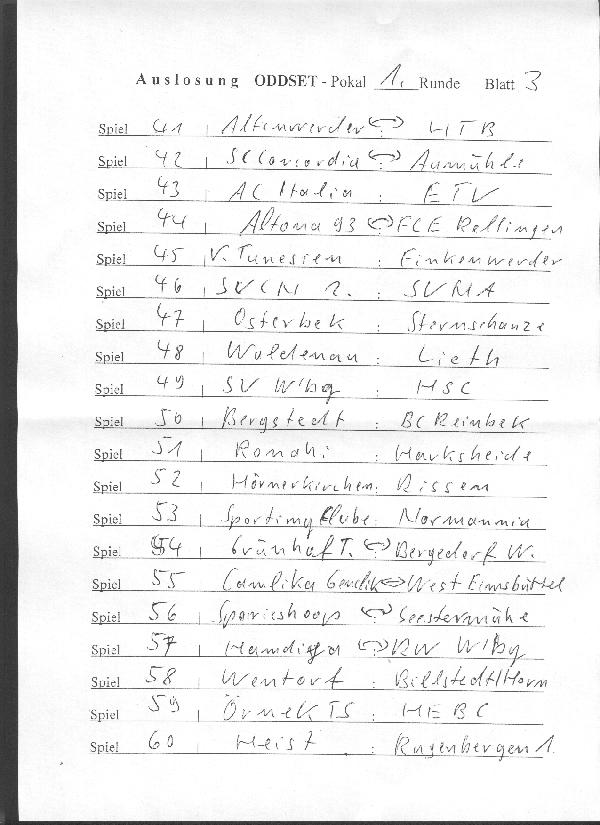 Auslosung ODDSET - Pokal 1. Runde Blatt 3
Spiel 41 | Altenwerder ↔ HTB
Spiel 42 | SC Concordia ↔ Aumühle
Spiel 43 | AC Italia : ETV
Spiel 44 | Altona 93 ↔ FCE Rellingen
Spiel 45 | V. Tunesien : Finkenwerder
Spiel 46 | SVCN 2. : SVNA
Spiel 47 | Osterbek : Sternschanze
Spiel 48 | Waldenau : Lieth
Spiel 49 | SV W'bg : HSC
Spiel 50 | Bergstedt : BC Reinbek
Spiel 51 | Ronahi : Harksheide
Spiel 52 | Hörnerkirchen : Rissen
Spiel 53 | Sporting Clube : Normannia
Spiel 54 | Grünhof T. ↔ Bergedorf W.
Spiel 55 | Camlika Genclik ↔ West Eimsbüttel
Spiel 56 | Sparrieshoop ↔ Seestermühe
Spiel 57 | Hamdiya ↔ RW W'bg
Spiel 58 | Wentorf : Billstedt/Horn
Spiel 59 | Örnek TS : HEBC
Spiel 60 | Heist : Rugenbergen 1.